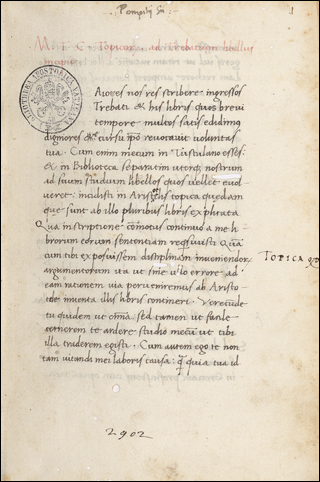 1
M. T. C. Topicorum ad Trebatium libellus
incipit
Aiores nos res scribere ingressos
Trebati & his libris quos brevi
tempore multos satis edidimus
digniores e cursu ipō revocavit voluntas
tua. Cum enim mecum in Tusculano esses
& in Biblioteca separatim uterque nostrum
ad suum studium libellos quos vellet evol
veret: incidisti in Aristotelis topica quedam
que sunt ab illo pluribus libris explicata
Qua inscriptione cōmotus continuo a me li
brorum eorum sententiam requisivisti. Quā
cum tibi exposuissem disciplinam inveniendor
argumentorum ita ut sine ullo errore ad
eam rationem via perveniremus ab Aristo
tele inventa illis libris contineri. Verecunde
tu quidem ut omīa. sed tamen ut facile
cernerem te ardere studio mecū ut tibi
illa traderem egisti. Cum autem ego te non
tam vitandi mei laboris causa: quia tua id
Topica
2902